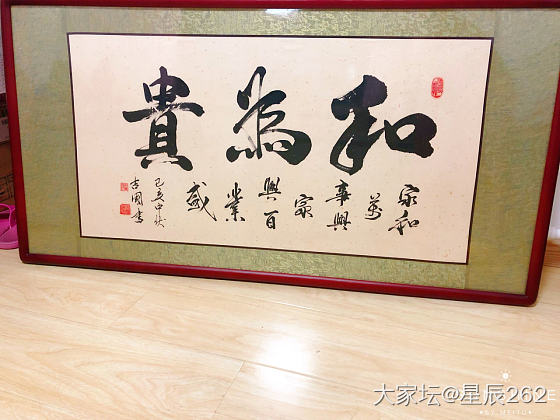 和為貴
家和
萬
事興
家
興百
業
盛
己亥中秋
大家坛@星辰262